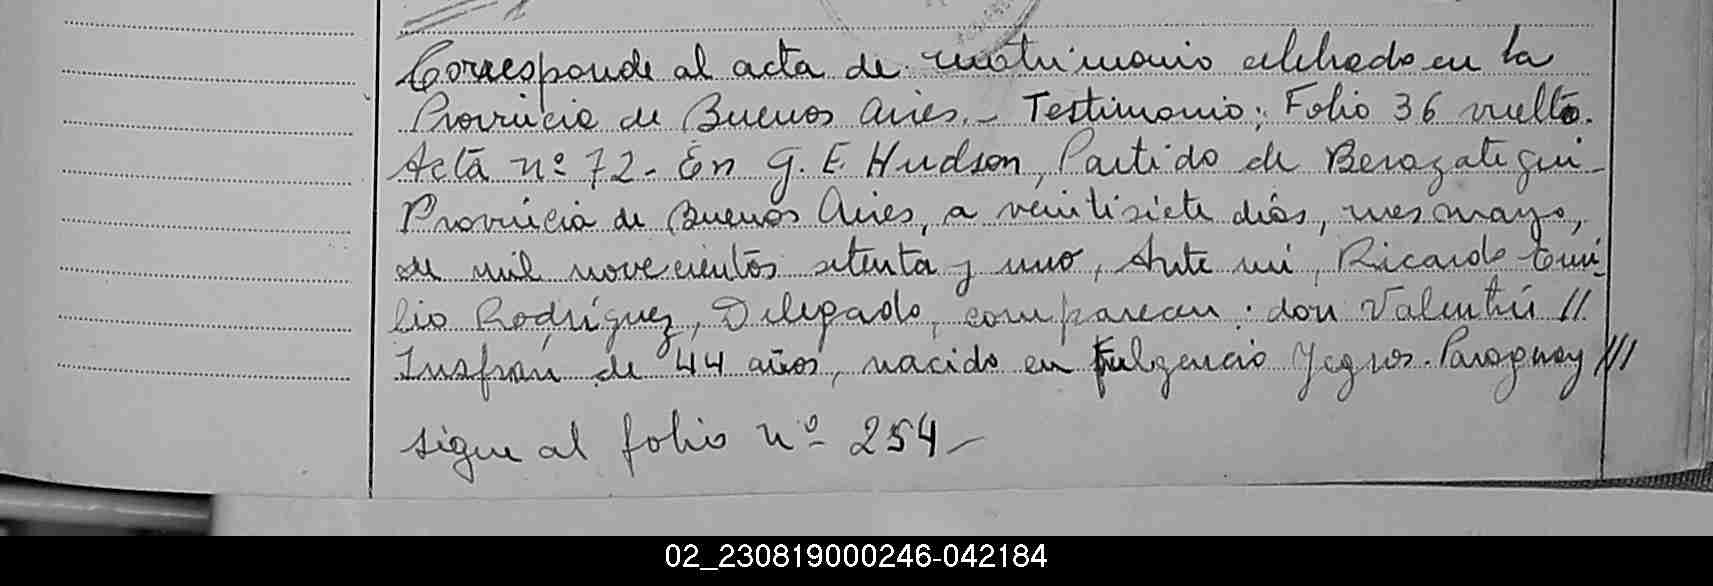 Corresponde al acta de matrimonio celebrado en la
Provincia de Buenos Aires.- Testimonio; Folio 36 vuelto.
Acta nº 72.- En G. E. Hudson, Partido de Berazategui-
Provincia de Buenos Aires, a veintisiete dias, mes mayo,
de mil novecientos setenta y uno, Ante mi, Ricardo Emi-
lio Rodríguez, Delegado, comparecen: don Valentín //
Insfrán de 44 años, nacido en Fulgencio Yegros. Paraguay ///
sigue al folio nº 254-
02_230819000246-042184